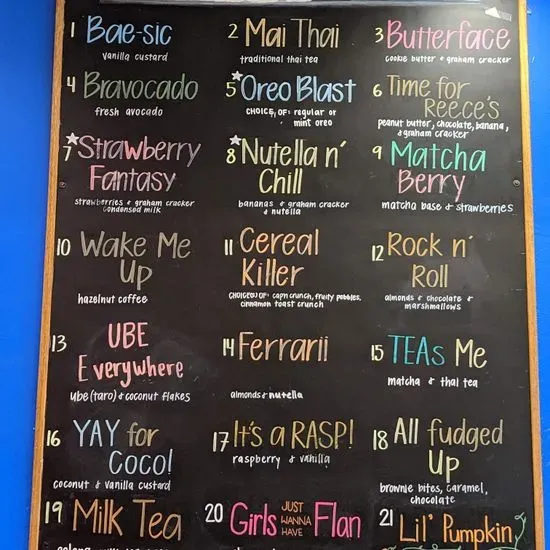 1 Bae-sic
vanilla custard
2 Mai Thai
traditional thai tea
3 Butterface
cookie butter & graham cracker
4 Bravocado
fresh avocado
5 Oreo Blast
CHOICE OF: regular or
mint oreo
6 Time for
Reece's
peanut butter, chocolate, banana,
& graham cracker
7 Strawberry
Fantasy
strawberries & graham cracker
condensed milk
8 Nutella n'
Chill
bananas & graham cracker
& nutella
9 Matcha
Berry
matcha base & strawberries
10 Wake Me
Up
hazelnut coffee
11 Cereal
Killer
CHOICE(S) OF: capn crunch, fruity pebbles,
cinnamon toast crunch
12 Rock n'
Roll
almonds & chocolate &
marshmallows
13 UBE
Everywhere
ube (taro) & coconut flakes
14 Ferrarii
almonds & nutella
15 TEAs Me
matcha & thai tea
16 YAY for
COCO!
coconut & vanilla custard
17 It's a RASP!
raspberry & vanilla
18 All fudged
Up
brownie bites, caramel,
chocolate
19 Milk Tea
20 Girls JUST
WANNA
HAVE Flan
21 Lil' Pumpkin